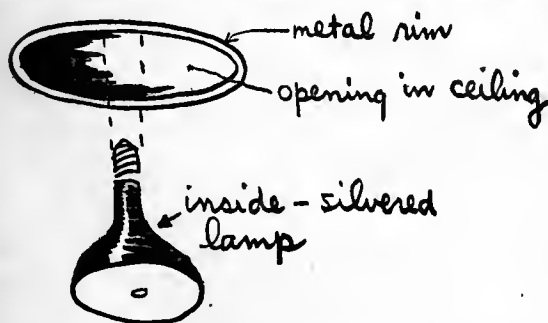 metal rim
opening in ceiling
inside-silvered
lamp